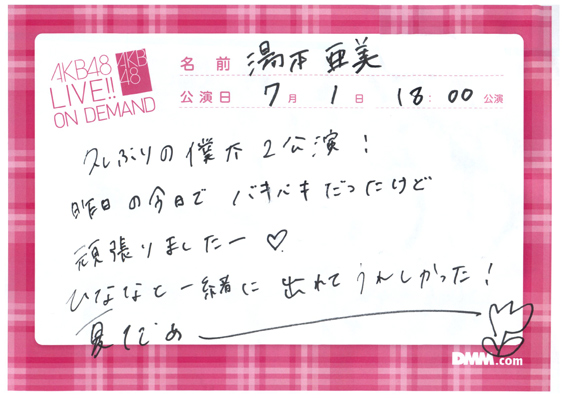 AKB48
LIVE!!
ON DEMAND
AKB
48
名前 湯本 亜美
公演日 7月1日 18:00公演
久しぶりの僕太2公演!
昨日の今日でバキバキだったけど
頑張りましたー♡
ひななと一緒に出れてうれしかった!
夏だぁ
DMM.com